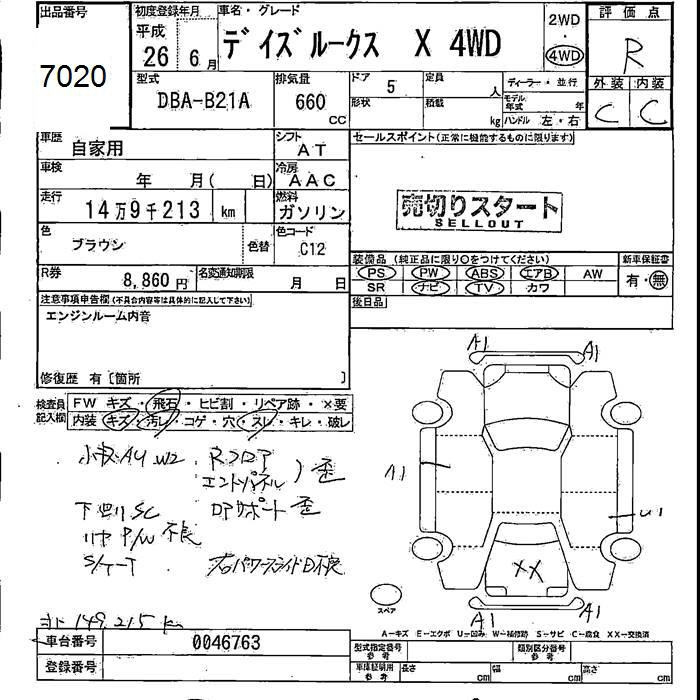 出品番号
7020
初度登録年月
平成
26 6月
車名・グレード
デイズルークス X 4WD
2WD
4WD
評価点
R
型式
DBA-B21A
排気量
660
CC
ドア 5
形状
定員 人
積載 kg
ディーラー・並行
モデル年式 年
ハンドル 左・右
外装 内装
C C
車歴
自家用
シフト
AT
セールスポイント(正常に機能するものに限ります)
車検
年 月( 日)
冷房
AAC
走行
14万9千213 km
燃料
ガソリン
売切りスタート
SELLOUT
色
ブラウン
色替
色コード
C12
装備品(純正品に限り〇をつけてください)
新車保証書
PS PW ABS エアB AW
有・無
SR ナビ TV カワ
R券
8,860円
名変通知期限
月 日
後日品
注意事項申告欄(不具合内容等は具体的に記入して下さい)
エンジンルーム内音
修復歴 有〔箇所 〕
検査員記入欄
FW キズ・飛石・ヒビ割・リペア跡・×要
内装 キズ・汚レ・コゲ・穴・スレ・キレ・破レ
小波AU W2
Rフロア
エンドパネル 歪
下廻りSC
ロアサポート 歪
P/W 不良
右パワースライドD不良
149,215 km
A1 A1
A1
U1
XX
A1 A1
スペア
A-キズ E-エクボ U-凹み W-補修跡 S-サビ C-腐食 XX-交換済
車台番号 0046763
登録番号
型式指定番号 参考
類別区分番号 参考
車庫証明用 参考
長さ cm 幅 cm 高さ cm